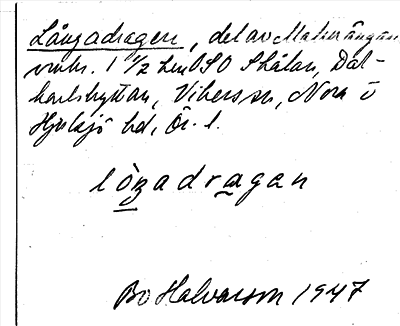 Långadragen, del av Malmängen
omkr. 1 1/2 km OSO Skålan, Dal-
karlshyttan, Vikers sn, Nora o
Hjulsjö hd, Ör. l.
lòŋadragan
Bo Halvarson 1947